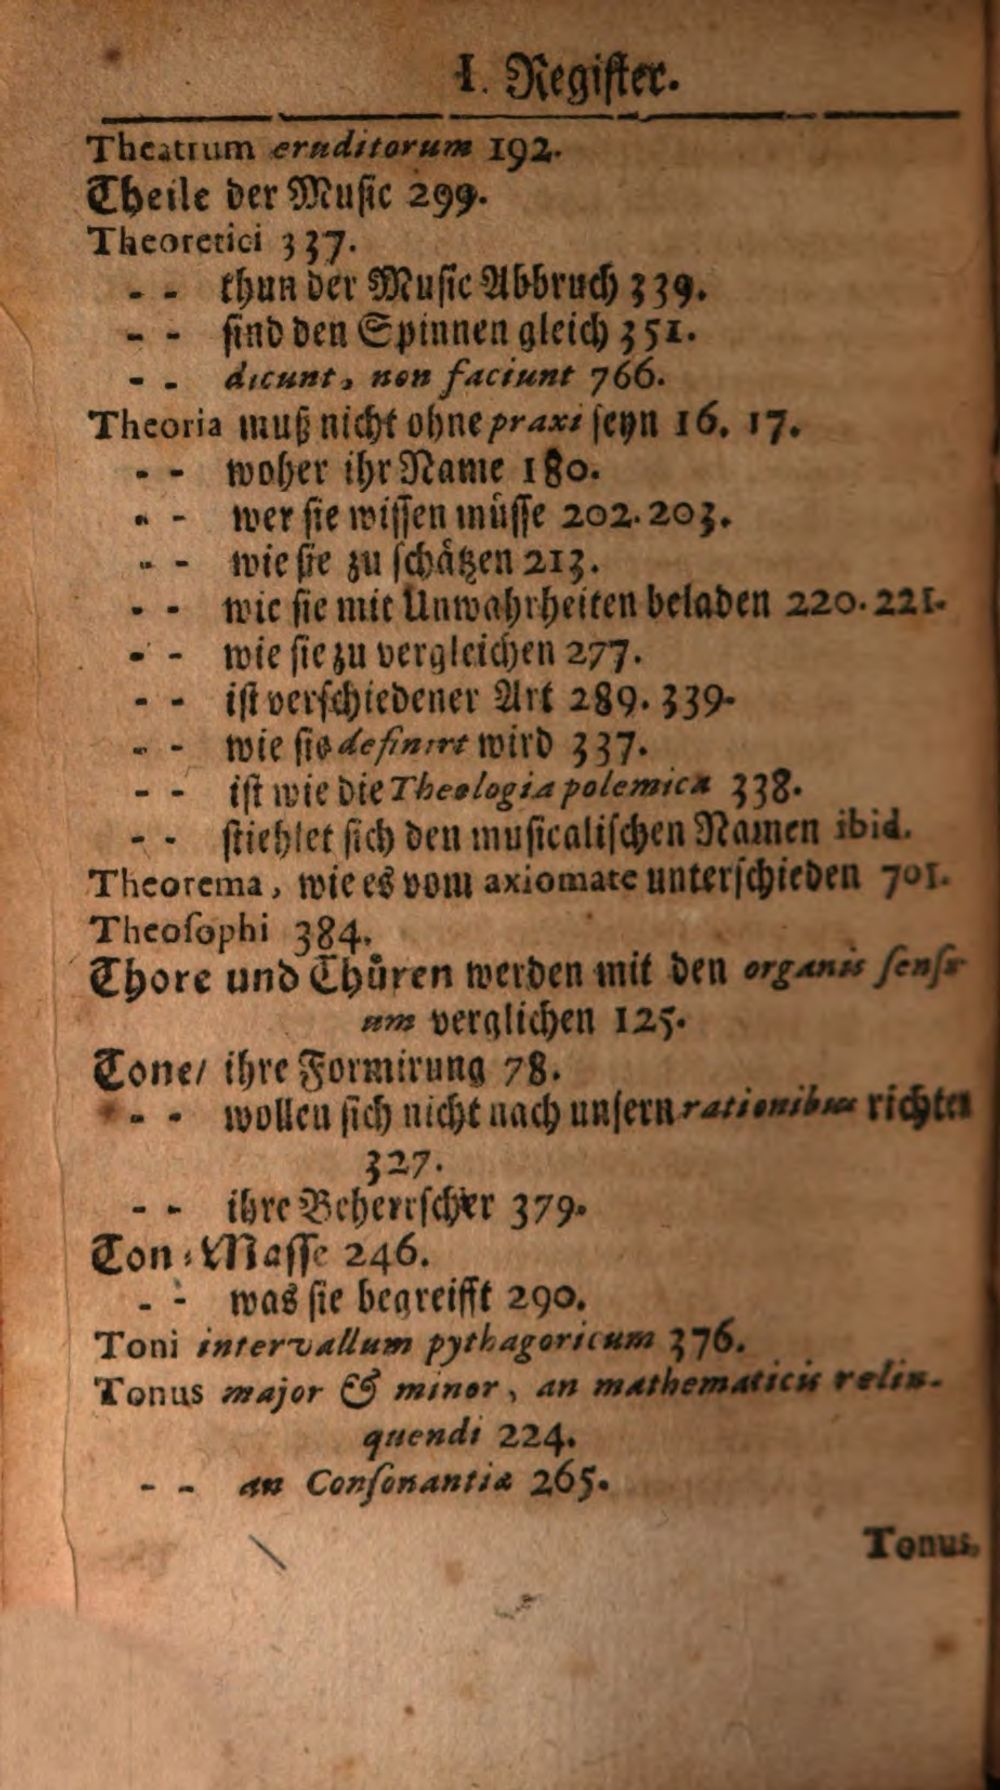 I. Regiſter.
Theatrum eruditorum 192.
Theile der Muſic 299.
Theoretici 337.
- - thun der Muſic Abbruch 339.
- - ſind den Spinnen gleich 351.
- - dicunt, non faciunt 766.
Theoria muß nicht ohne praxi ſeyn 16. 17.
- - woher ihr Name 180.
- - wer ſie wiſſen müſſe 202. 203.
- - wie ſie zu ſchätzen 213.
- - wie ſie mit Unwahrheiten beladen 220. 221.
- - wie ſie zu vergleichen 277.
- - iſt verſchiedener Art 289. 339.
- - wie ſie definirt wird 337.
- - iſt wie die Theologia polemica 338.
- - ſtiehlet ſich den muſicaliſchen Namen ibid.
Theorema, wie es vom axiomate unterſchieden 701.
Theoſophi 384.
Thore und Thüren werden mit den organis ſenſu-
um verglichen 125.
Tone/ ihre Formirung 78.
- - wollen ſich nicht nach unſern rationibus richten
327.
- - ihre Beherrſcher 379.
Ton-Maſſe 246.
- - was ſie begreifft 290.
Toni intervallum pythagoricum 376.
Tonus major & minor, an mathematicis relin-
quendi 224.
- - an Conſonantia 265.
Tonus,